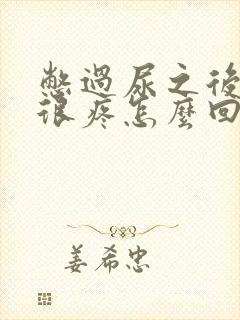 憋過尿之後
很疼怎麼回
姜希忠